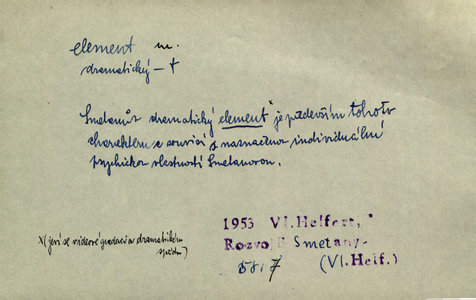 element m.
dramatický – †
Smetanův dramatický element x je především tohoto
charakteru a souvisí s naznačenou individuální
psychickou vlastností Smetanovou.
x (jeví se
dramatickém
1953 Vl.Helfert,
Rozvoj Smetany-
58.17 (Vl.Helf.)